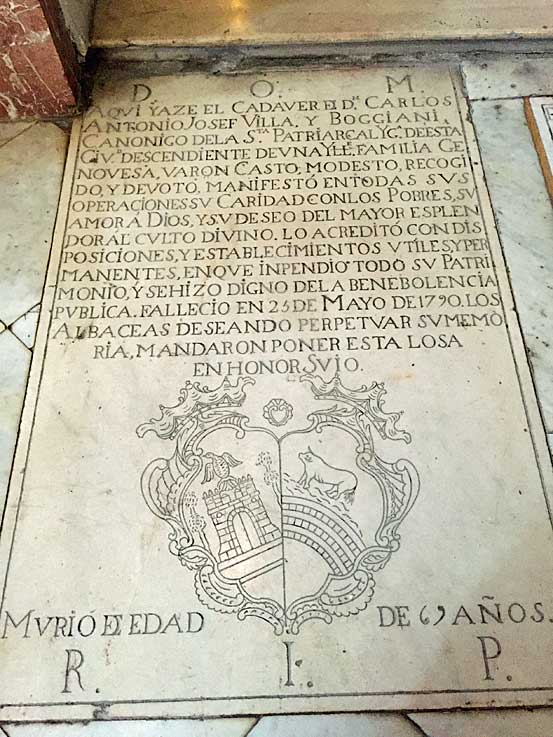 D. O. M.
AQUI YAZE EL CADAVER EL Dⁿ. CARLOS
ANTONIO JOSEF VILLA, Y BOGGIANI,
CANONIGO DE LA Sᵀᴬ PATRIARCAL YGᵃ. DE ESTA
CIVᴰ. DESCENDIENTE DE VNA YLᴱ. FAMILIA GE
NOVESA, VARON CASTO, MODESTO, RECOGI
DO, Y DEVOTO, MANIFESTÓ EN TODAS SUS
OPERACIONES SV CARIDAD CON LOS POBRES, SU
AMOR Á DIOS, Y SV DESEO DEL MAYOR ESPLEN
DOR AL CVLTO DIVINO. LO ACREDITÓ CON DIS
POSICIONES, Y ESTABLECIMIENTOS VTILES Y PER
MANENTES, EN QVE INPENDIÓ TODO SV PATRI
MONIO, Y SE HIZO DIGNO DE LA BENEBOLENCIA
PVBLICA. FALLECIO EN 25 DE MAYO DE 1790. LOS
ALBACEAS DESEANDO PERPETVAR SV MEMO
RIA, MANDARON PONER ESTA LOSA
EN HONOR SVIO.
MVRIÓ EN EDAD DE 69 AÑOS.
R. I. P.